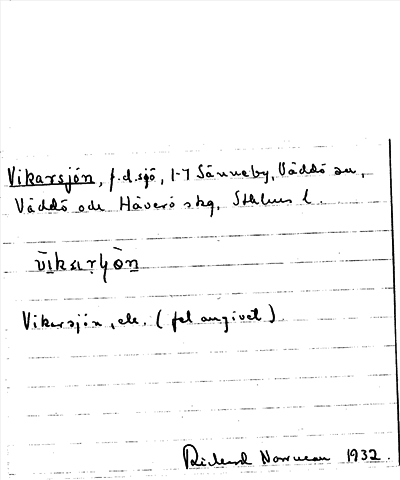 Vikarsjön, f.d. sjö, 1-7 Sänneby, Väddö sn,
Väddö och Häverö skg, Sthlms l.
Vikarsjön, ek. (fel angivet)
Rickard Norrman 1932.